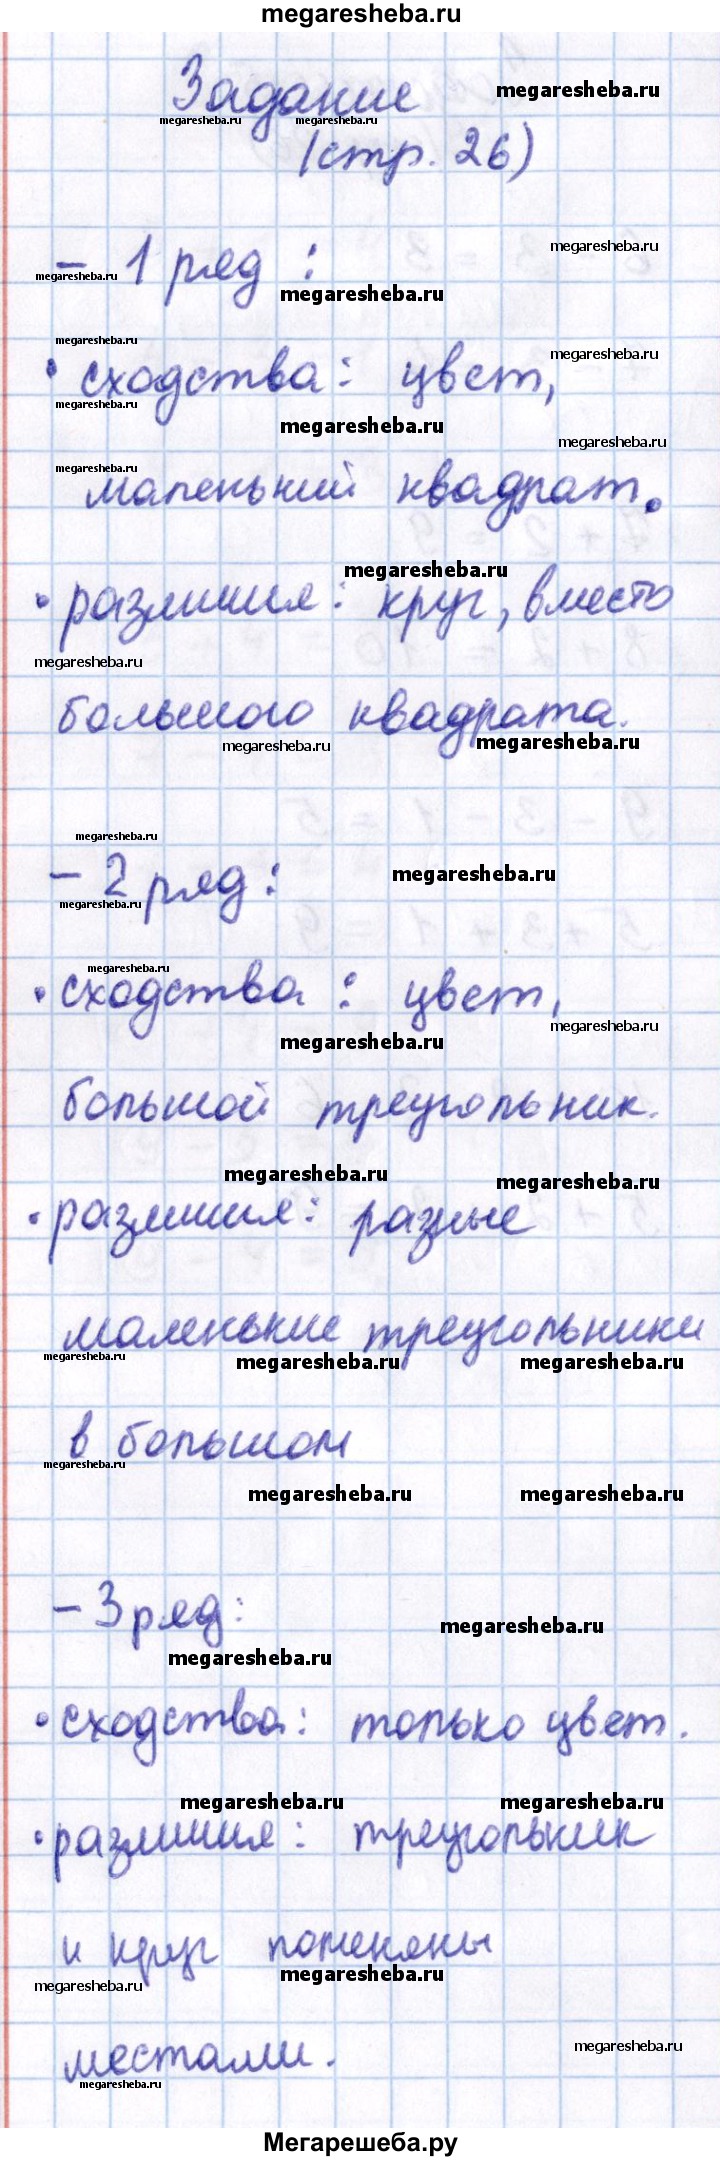 megaresheba.ru
Задание
(стр. 26)
- 1 ряд :
• сходства: цвет,
маленький квадрат.
• различия: круг, вместо
большого квадрата.
- 2 ряд:
• сходства: цвет,
большой треугольник.
• различия: разные
маленькие треугольники
в большом
- 3 ряд:
• сходства: только цвет.
• различия: треугольник
и круг поменяны
местами.
Мегарешеба.ру